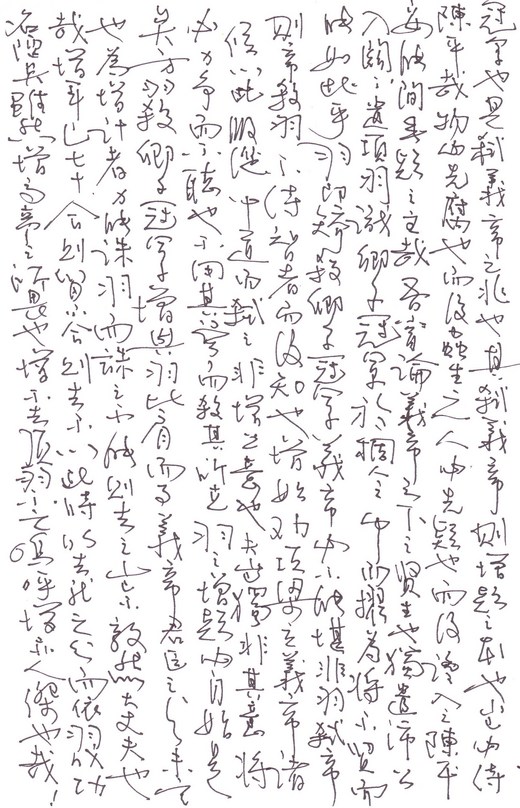 冠軍也是弒義帝之兆也其弒義帝則增疑之本也豈必待
陳平哉物必先腐也而後蟲生之人必先疑也而後讒入之陳平
安能間無疑之主哉吾嘗論義帝天下之賢主也獨遣沛公
入關不遣項羽識卿子冠軍於稠人之中而擢為將不賢而
能如此乎羽即矯殺卿子冠軍義帝必不能堪非羽弒帝
則帝殺羽不待智者而後知也增始勸項梁立義帝諸
侯以此服從中道而弒之非增之意也夫豈獨非其意將
必力爭而不聽也不用其言而殺其所立羽之增疑必自始是
矣方羽殺卿子冠軍增與羽比肩而事義帝君臣之分未定
也為增計者力能誅羽而誅之不能則去之豈不毅然大丈夫也
哉增年已七十合則留不合則去不以此時明去就之分而依羽成功
名陋矣雖然增高帝之所畏也增不去項羽不亡。嗚呼增亦人傑也哉!